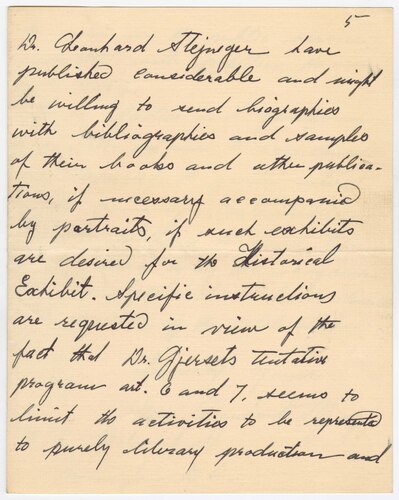 5
Dr. Leonhard Stejneger have
published considerable and might
be willing to send biographies
with bibliographies and samples
of their books and other publica-
tions, if necessary accompanied
by portraits, if such exhibits
are desired for the Historical
Exhibit. Specific instructions
are requested in view of the
fact that Dr. Gjersets tentative
program art. 6 and 7, seems to
limit the activities to be represented
to purely literary production and